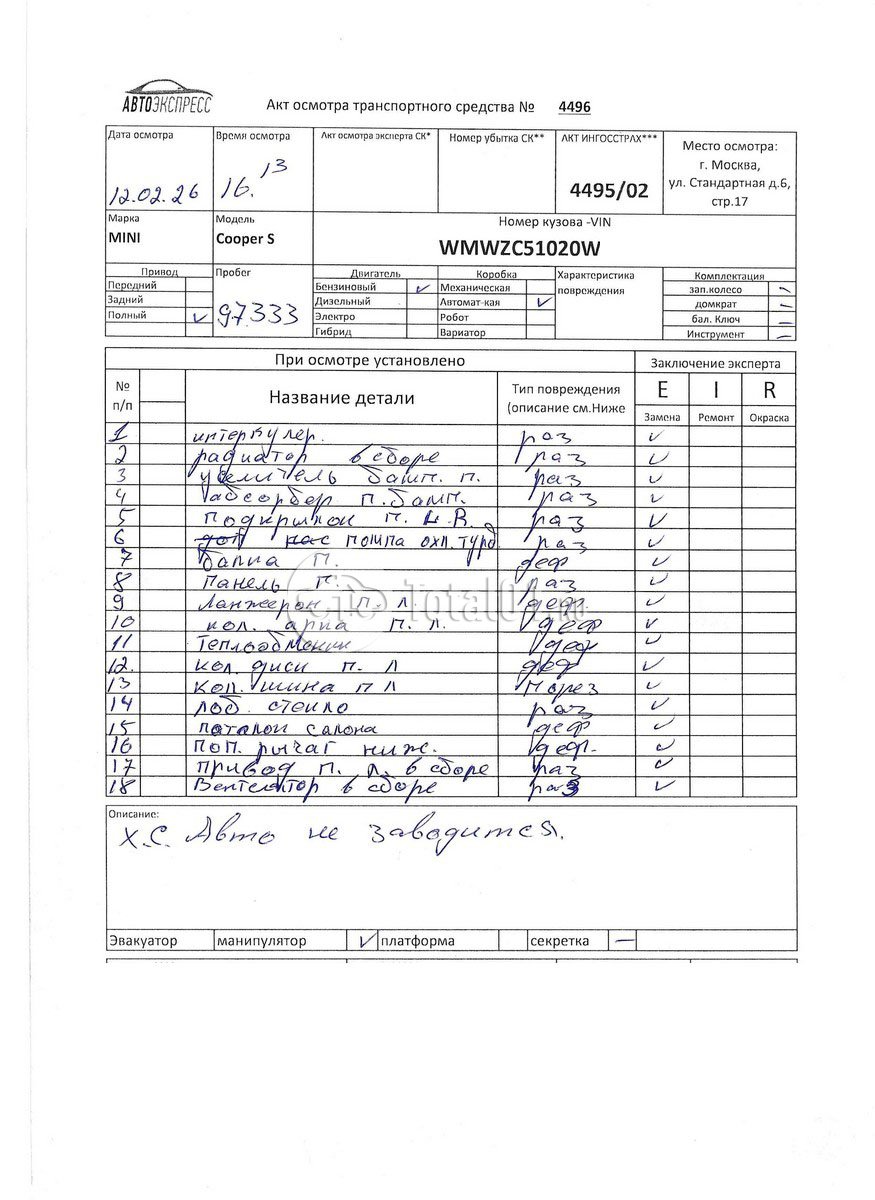 АВТОЭКСПРЕСС
Акт осмотра транспортного средства № 4496
Дата осмотра
12.02.26
Время осмотра
16.13
Акт осмотра эксперта СК*
Номер убытка СК**
АКТ ИНГОССТРАХ***
4495/02
Место осмотра:
г. Москва,
ул. Стандартная д.6,
стр.17
Марка
MINI
Модель
Cooper S
Номер кузова -VIN
WMWZC51020W
Привод
Передний
Задний
Полный ✓
Пробег
97333
Двигатель
Бензиновый ✓
Дизельный
Электро
Гибрид
Коробка
Механическая
Автомат-кая ✓
Робот
Вариатор
Характеристика
повреждения
Комплектация
зап.колесо –
домкрат –
бал. Ключ –
Инструмент –
При осмотре установлено
Заключение эксперта
№
п/п
Название детали
Тип повреждения
(описание см.Ниже
E I R
Замена Ремонт Окраска
1 интеркулер. раз ✓
2 радиатор в сборе раз ✓
3 усилитель бамп. п. раз ✓
4 абсорбер п. бамп. раз ✓
5 подкрылок п. L.R. раз ✓
6 помпа охл. турб раз ✓
7 балка п. деф ✓
8 панель п. раз ✓
9 Ланжерон п. л деф ✓
10 кол. арка п. л. деф ✓
11 Теплообменик деф ✓
12. кол. диск п. л деф ✓
13 кол. шина п л порез ✓
14 лоб. стекло раз ✓
15 паталок салона деф ✓
16 поп. рычаг ниж. деф. ✓
17 привод п. л. в сборе раз ✓
18 Вентелятор в сборе раз ✓
Total01.ru
Описание:
Х.С. Авто не заводится.
Эвакуатор манипулятор ✓ платформа секретка –